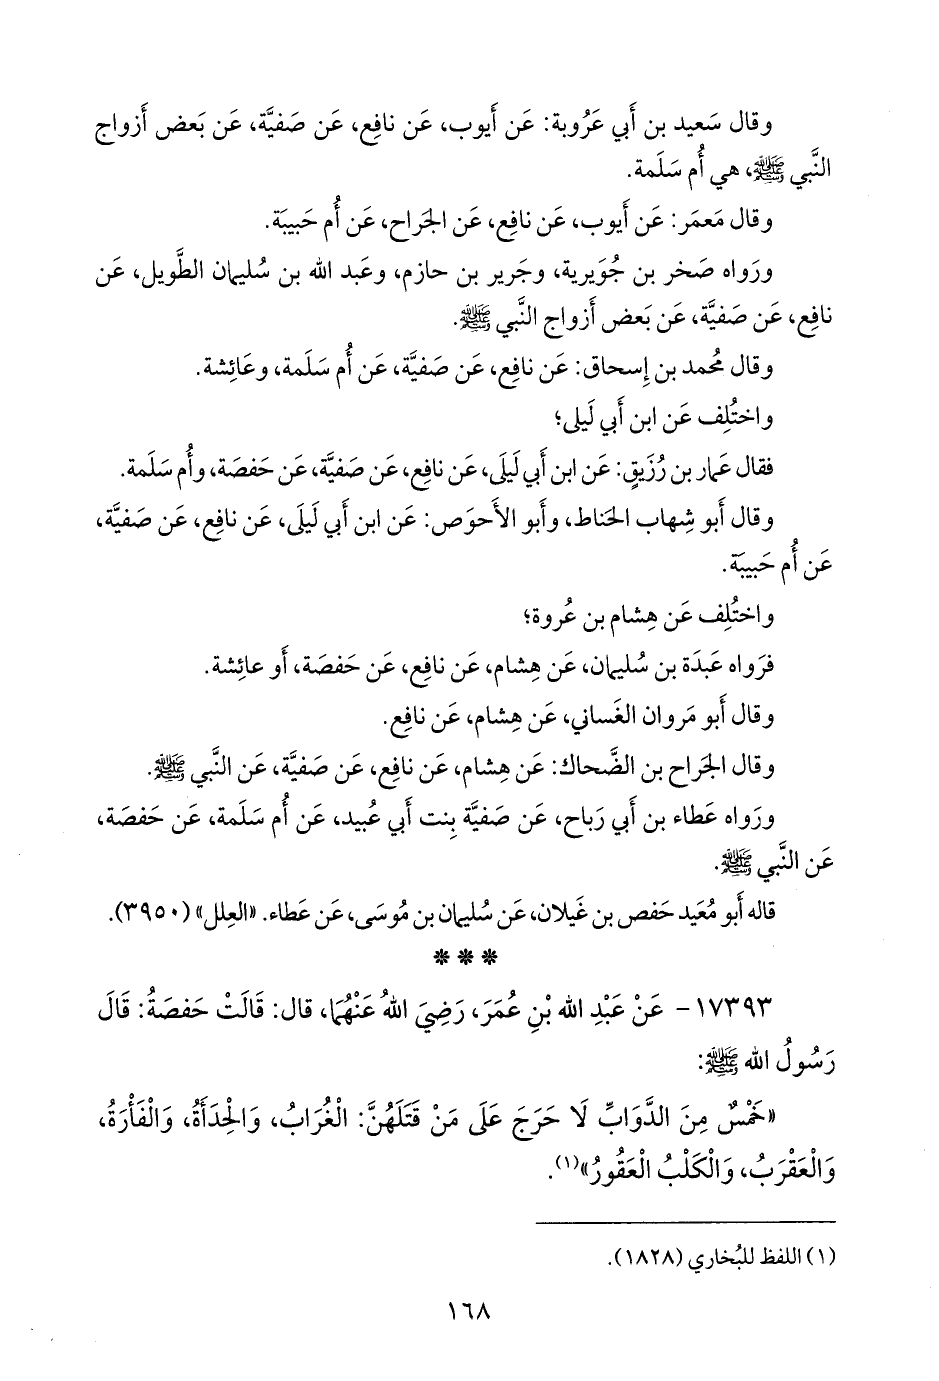 وقال سَعيد بن أَبي عَرُوبة: عَن أَيوب، عَن نافِع، عَن صَفيَّة، عَن بَعض أَزواج
النَّبي ﷺ، هي أُم سَلَمة.
وقال مَعمَر: عَن أَيوب، عَن نافِع، عَن الجَراح، عَن أُم حَبيبَة.
ورَواه صَخر بن جُوَيرية، وجَرير بن حازم، وعَبد الله بن سُليمان الطَّويل، عَن
نافِع، عَن صَفيَّة، عَن بَعض أَزواج النَّبي ﷺ.
وقال مُحمد بن إِسحاق: عَن نافِع، عَن صَفيَّة، عَن أُم سَلَمة، وعَائِشة.
واختُلِف عَن ابن أَبي لَيلى؛
فقال عَمار بن رُزَيقٍ: عَن ابن أَبي لَيلَى، عَن نافِع، عَن صَفيَّة، عَن حَفصَة، وأُم سَلَمة.
وقال أَبو شِهاب الحَناط، وأَبو الأَحوَص: عَن ابن أَبي لَيلَى، عَن نافِع، عَن صَفيَّة،
عَن أُم حَبيبَة.
واختُلِف عَن هِشام بن عُروة؛
فرَواه عَبدَة بن سُليمان، عَن هِشام، عَن نافِع، عَن حَفصَة، أَو عائِشة.
وقال أَبو مَروان الغَساني، عَن هِشام، عَن نافِع.
وقال الجَراح بن الضَّحاك: عَن هِشام، عَن نافِع، عَن صَفيَّة، عَن النَّبي ﷺ.
ورَواه عَطاء بن أَبي رَباح، عَن صَفيَّة بِنت أَبي عُبيد، عَن أُم سَلَمة، عَن حَفصَة،
عَن النَّبي ﷺ.
قاله أَبو مُعَيد حَفص بن غَيلان، عَن سُليمان بن مُوسَى، عَن عَطاء. «العِلل» (٣٩٥٠).
* * *
١٧٣٩٣- عَنْ عَبْدِ الله بْنِ عُمَرَ، رَضِيَ اللهُ عَنْهُمَا، قال: قَالَتْ حَفصَةُ: قَالَ
رَسُولُ الله ﷺ:
«خَمْسٌ مِنَ الدَّوَابِّ لَا حَرَجَ عَلَى مَنْ قَتَلَهُنَّ: الْغُرَابُ، وَالْحِدَأَةُ، وَالْفَأْرَةُ،
وَالْعَقْرَبُ، وَالْكَلْبُ الْعَقُورُ»(١).
(١) اللفظ للبُخاري (١٨٢٨).
١٦٨